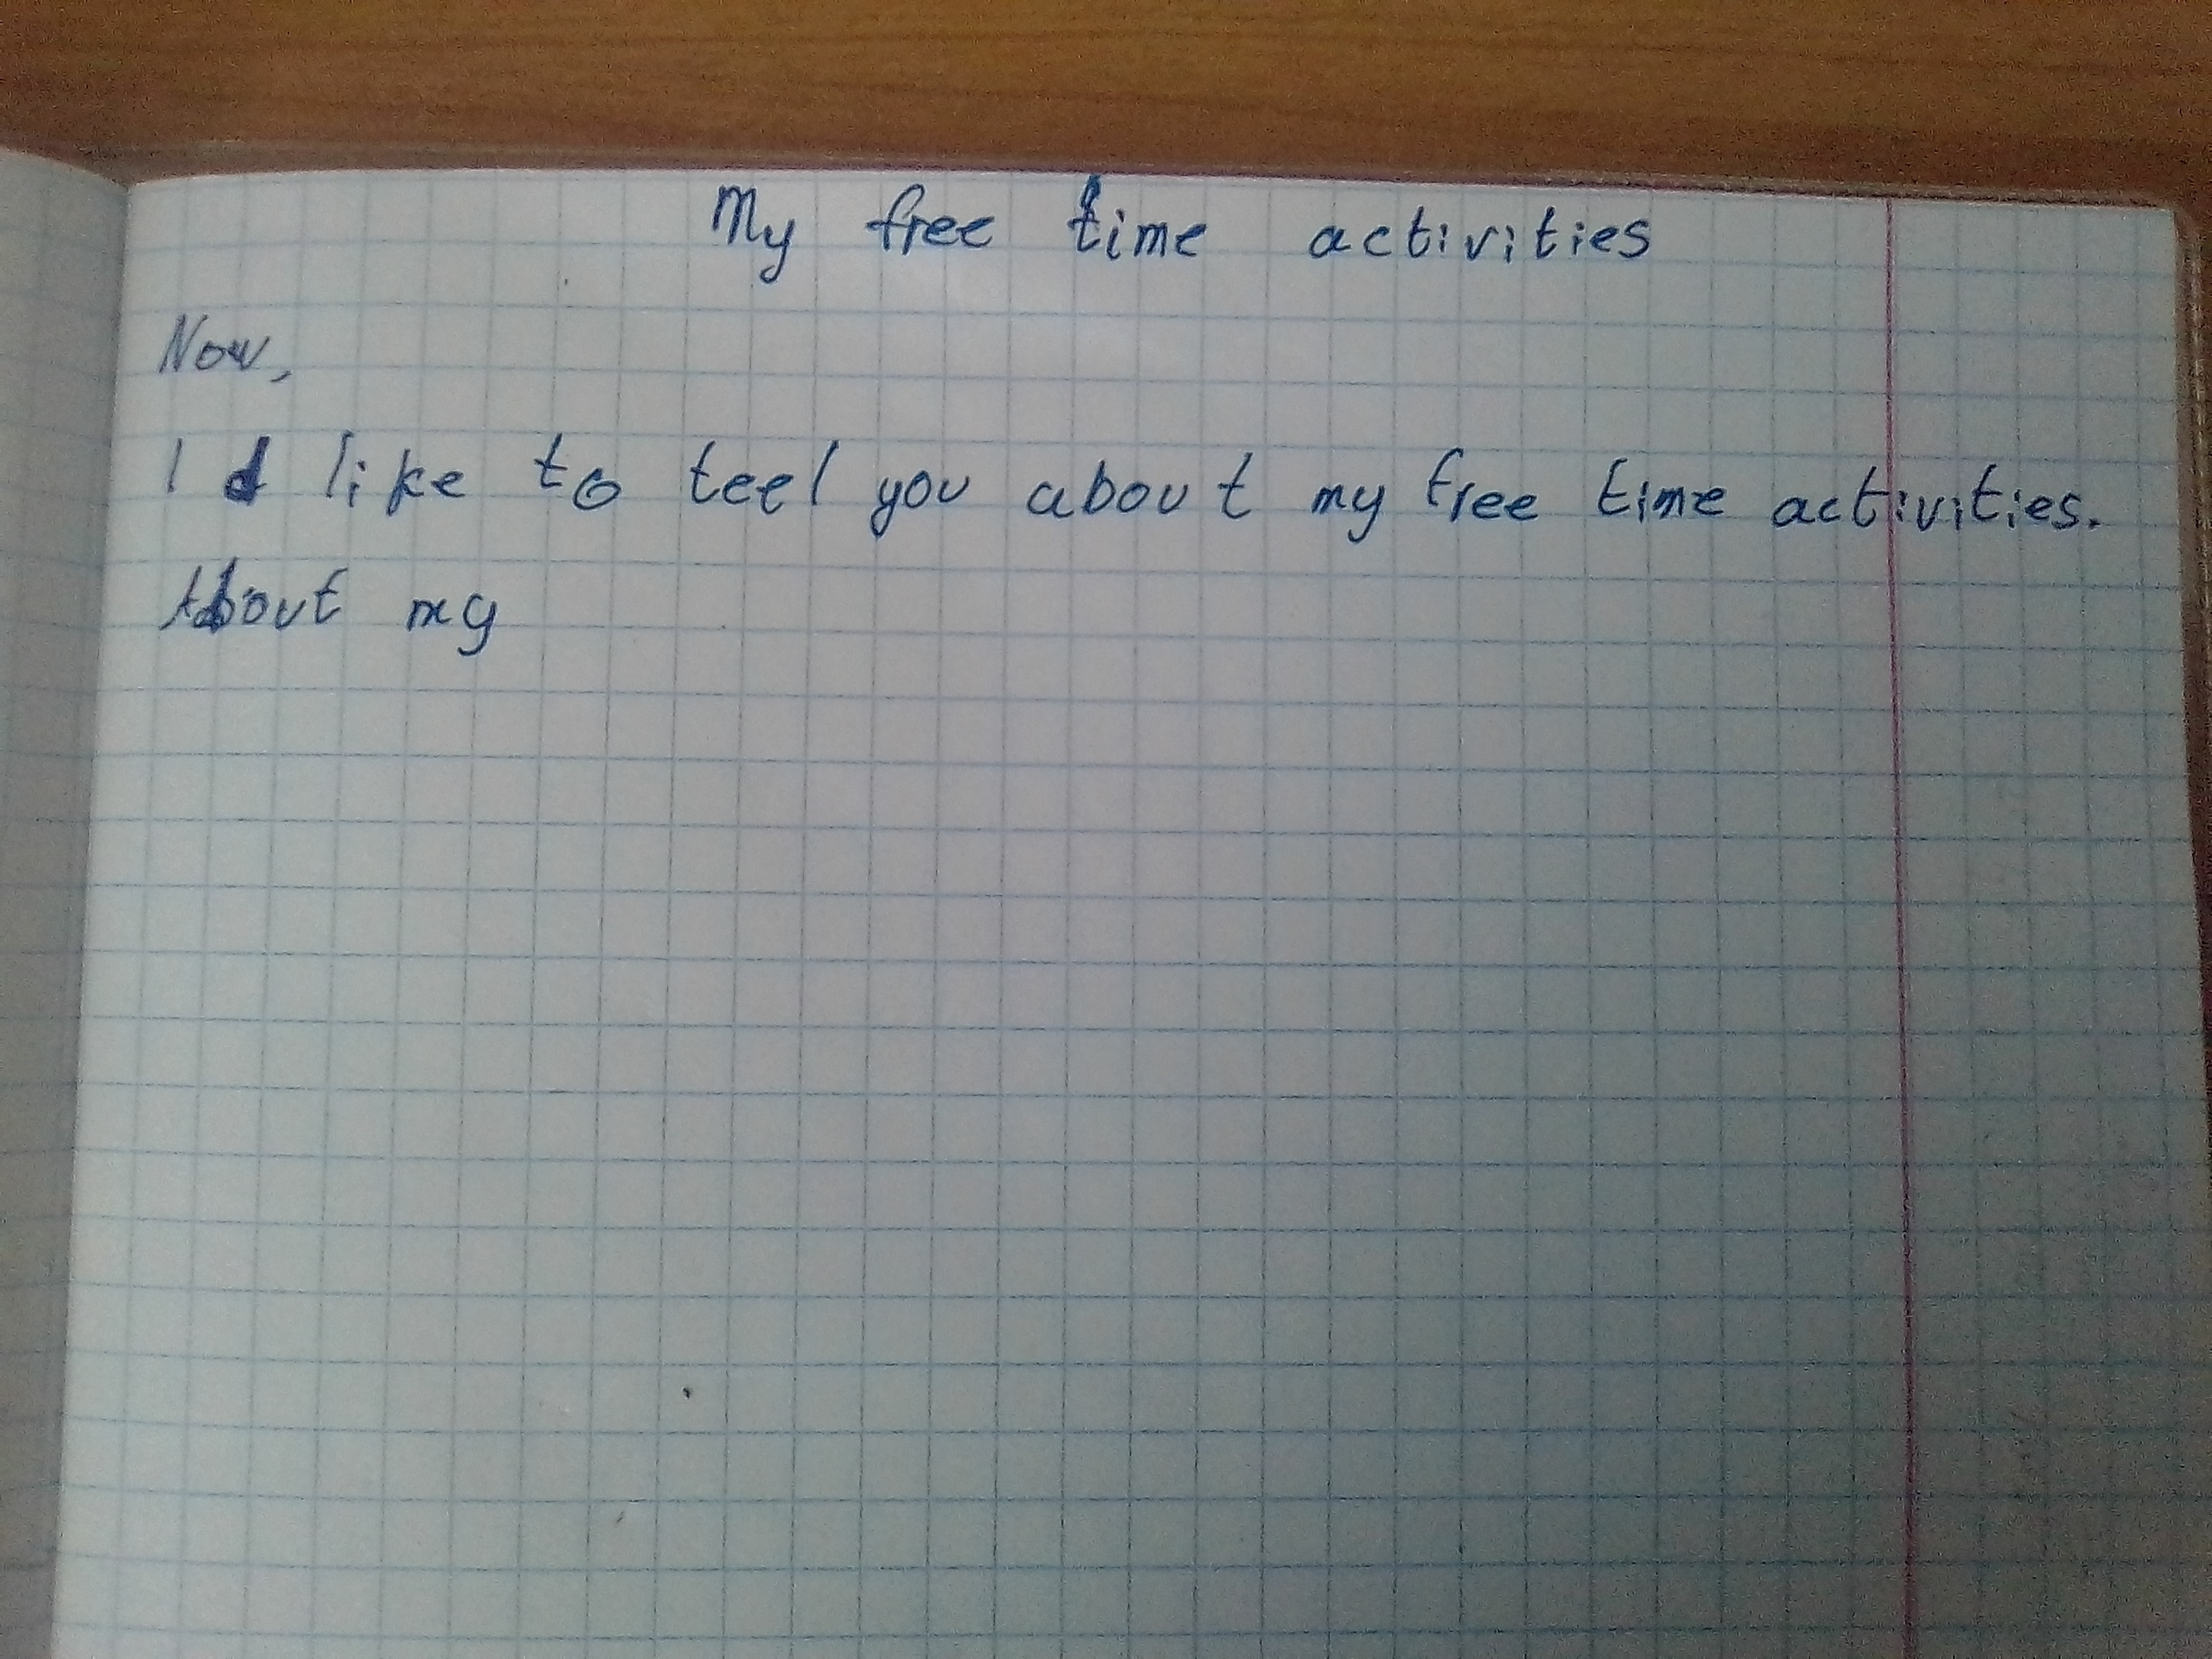 My free time activities
Now,
I d like to teel you about my free time activities.
About my